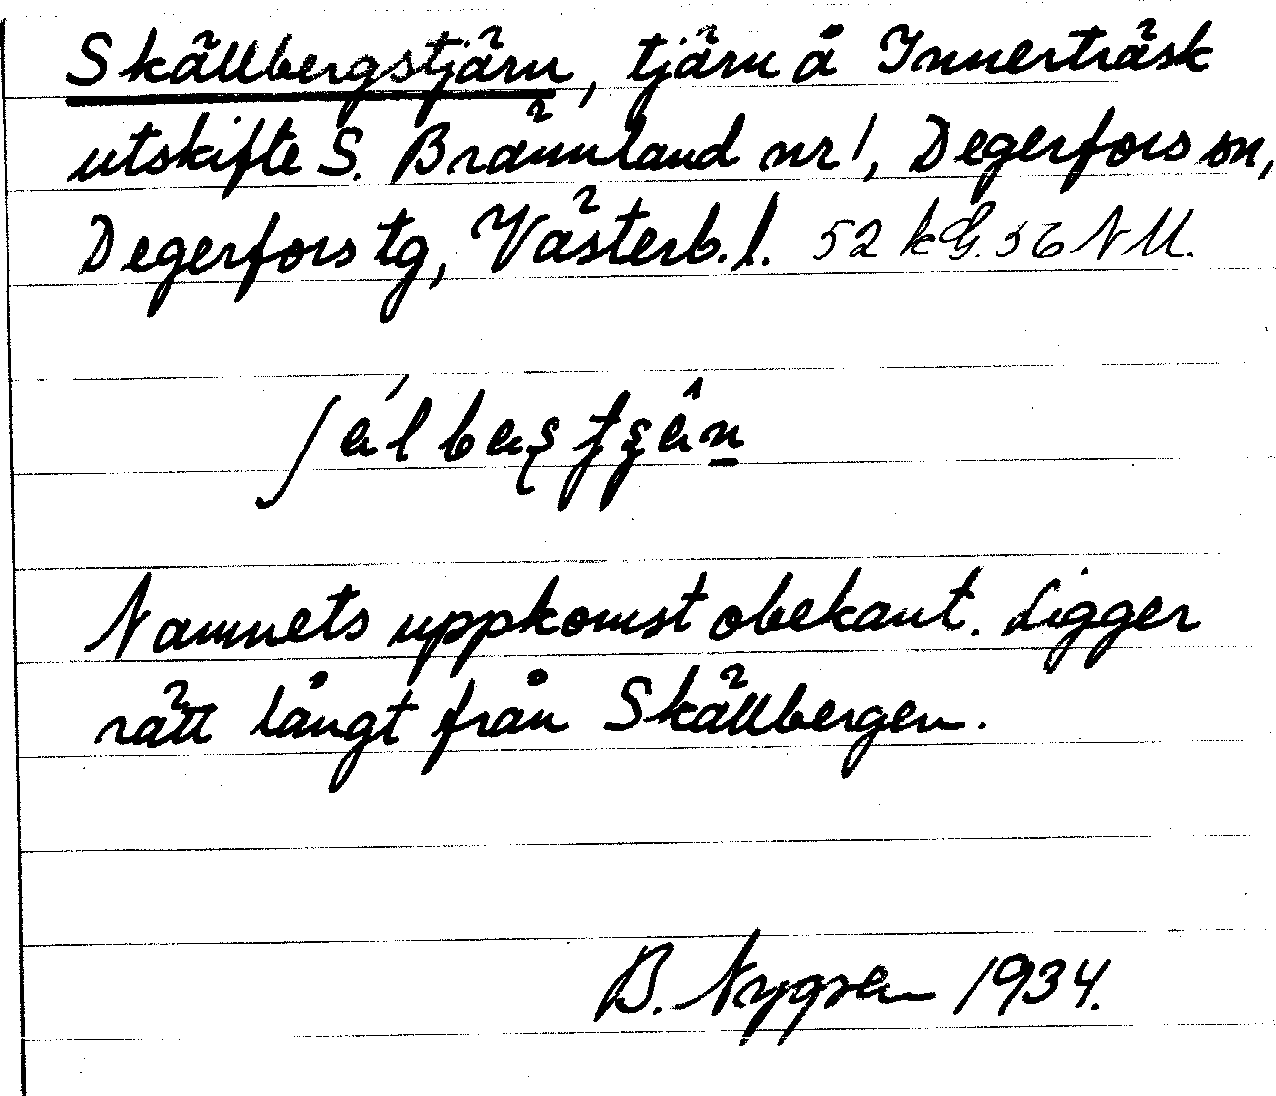 Skällbergstjärn, tjärn å Innerträsk
utskifte S. Brännland nr 1, Degerfors sn,
Degerfors tg, Västerb. l. 52 kG. 56 NM.
Namnets uppkomst obekant. Ligger
rätt långt från Skällbergen.
B. Nygren 1934.